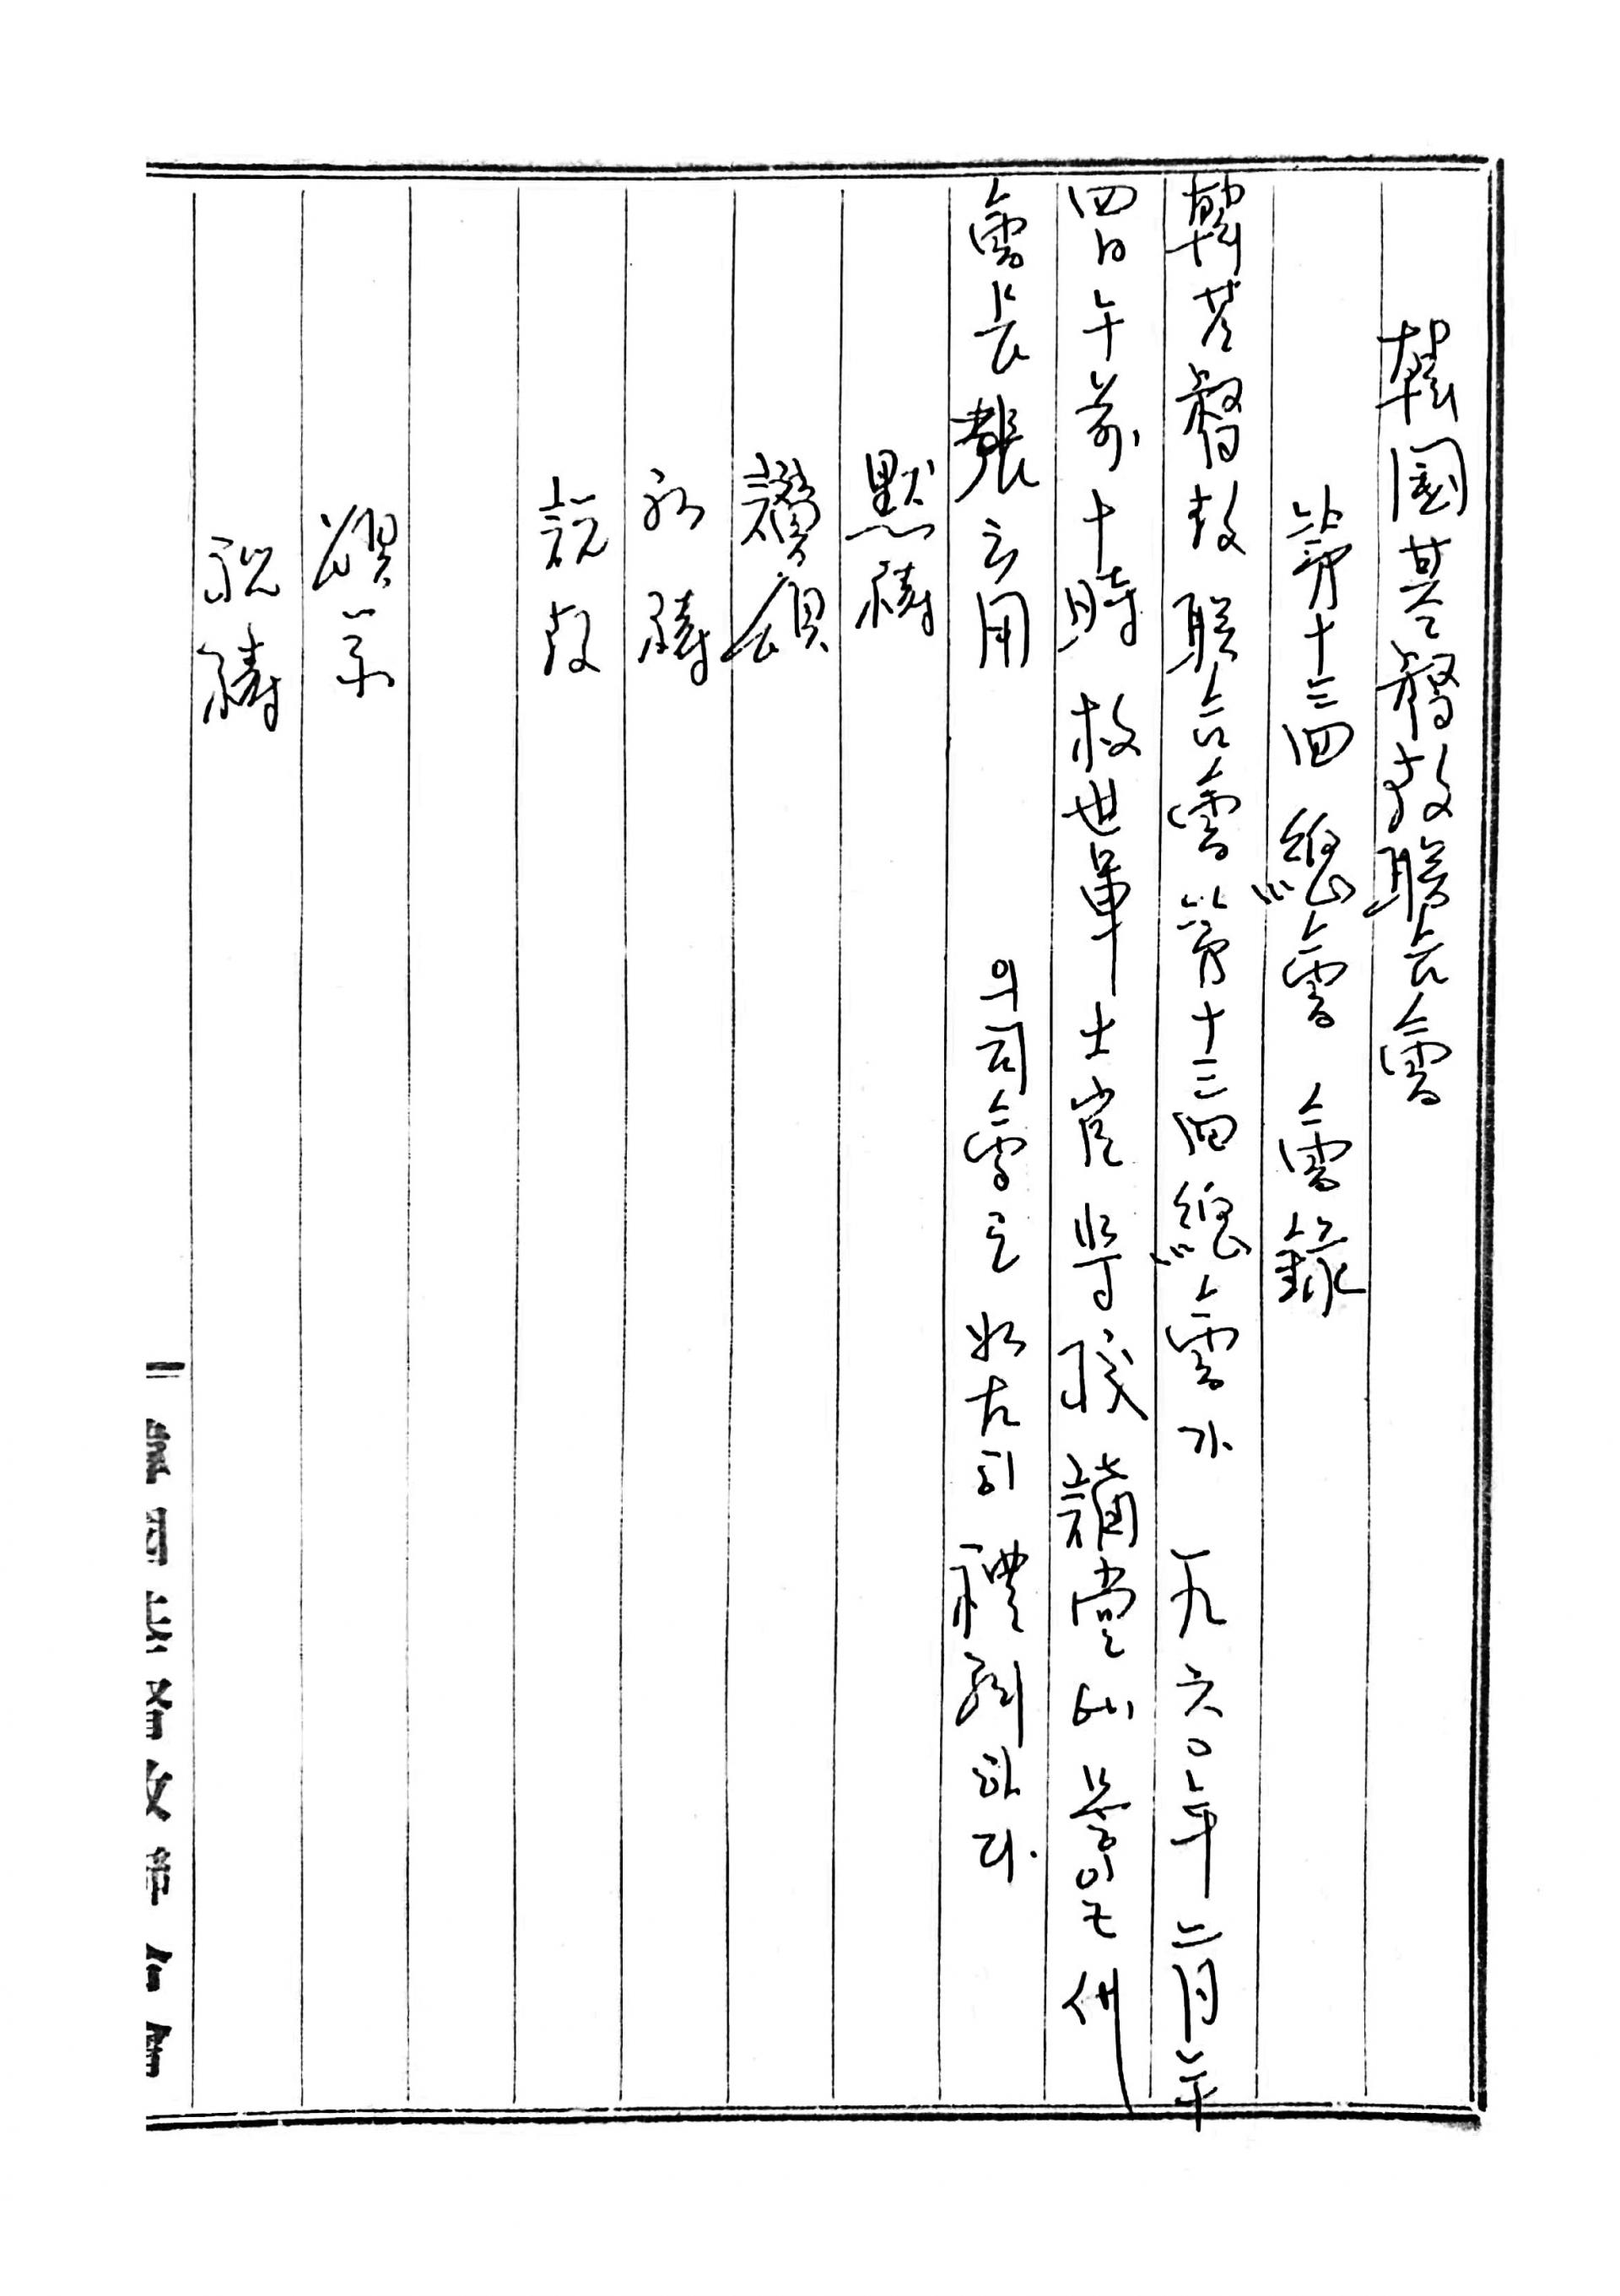 韓國基督教聯合會
第十三回 總會 會錄
韓基督教聯合會第十三回總會가 一九六〇年 二月
四日午前十時 救世軍士官學校 講堂에 募임코 代
會長 張云用 의司會로 如左히 禮拜하다.
默禱
讚頌
祈禱
説敎
頌榮
祝禱
韓國基督敎聯合會